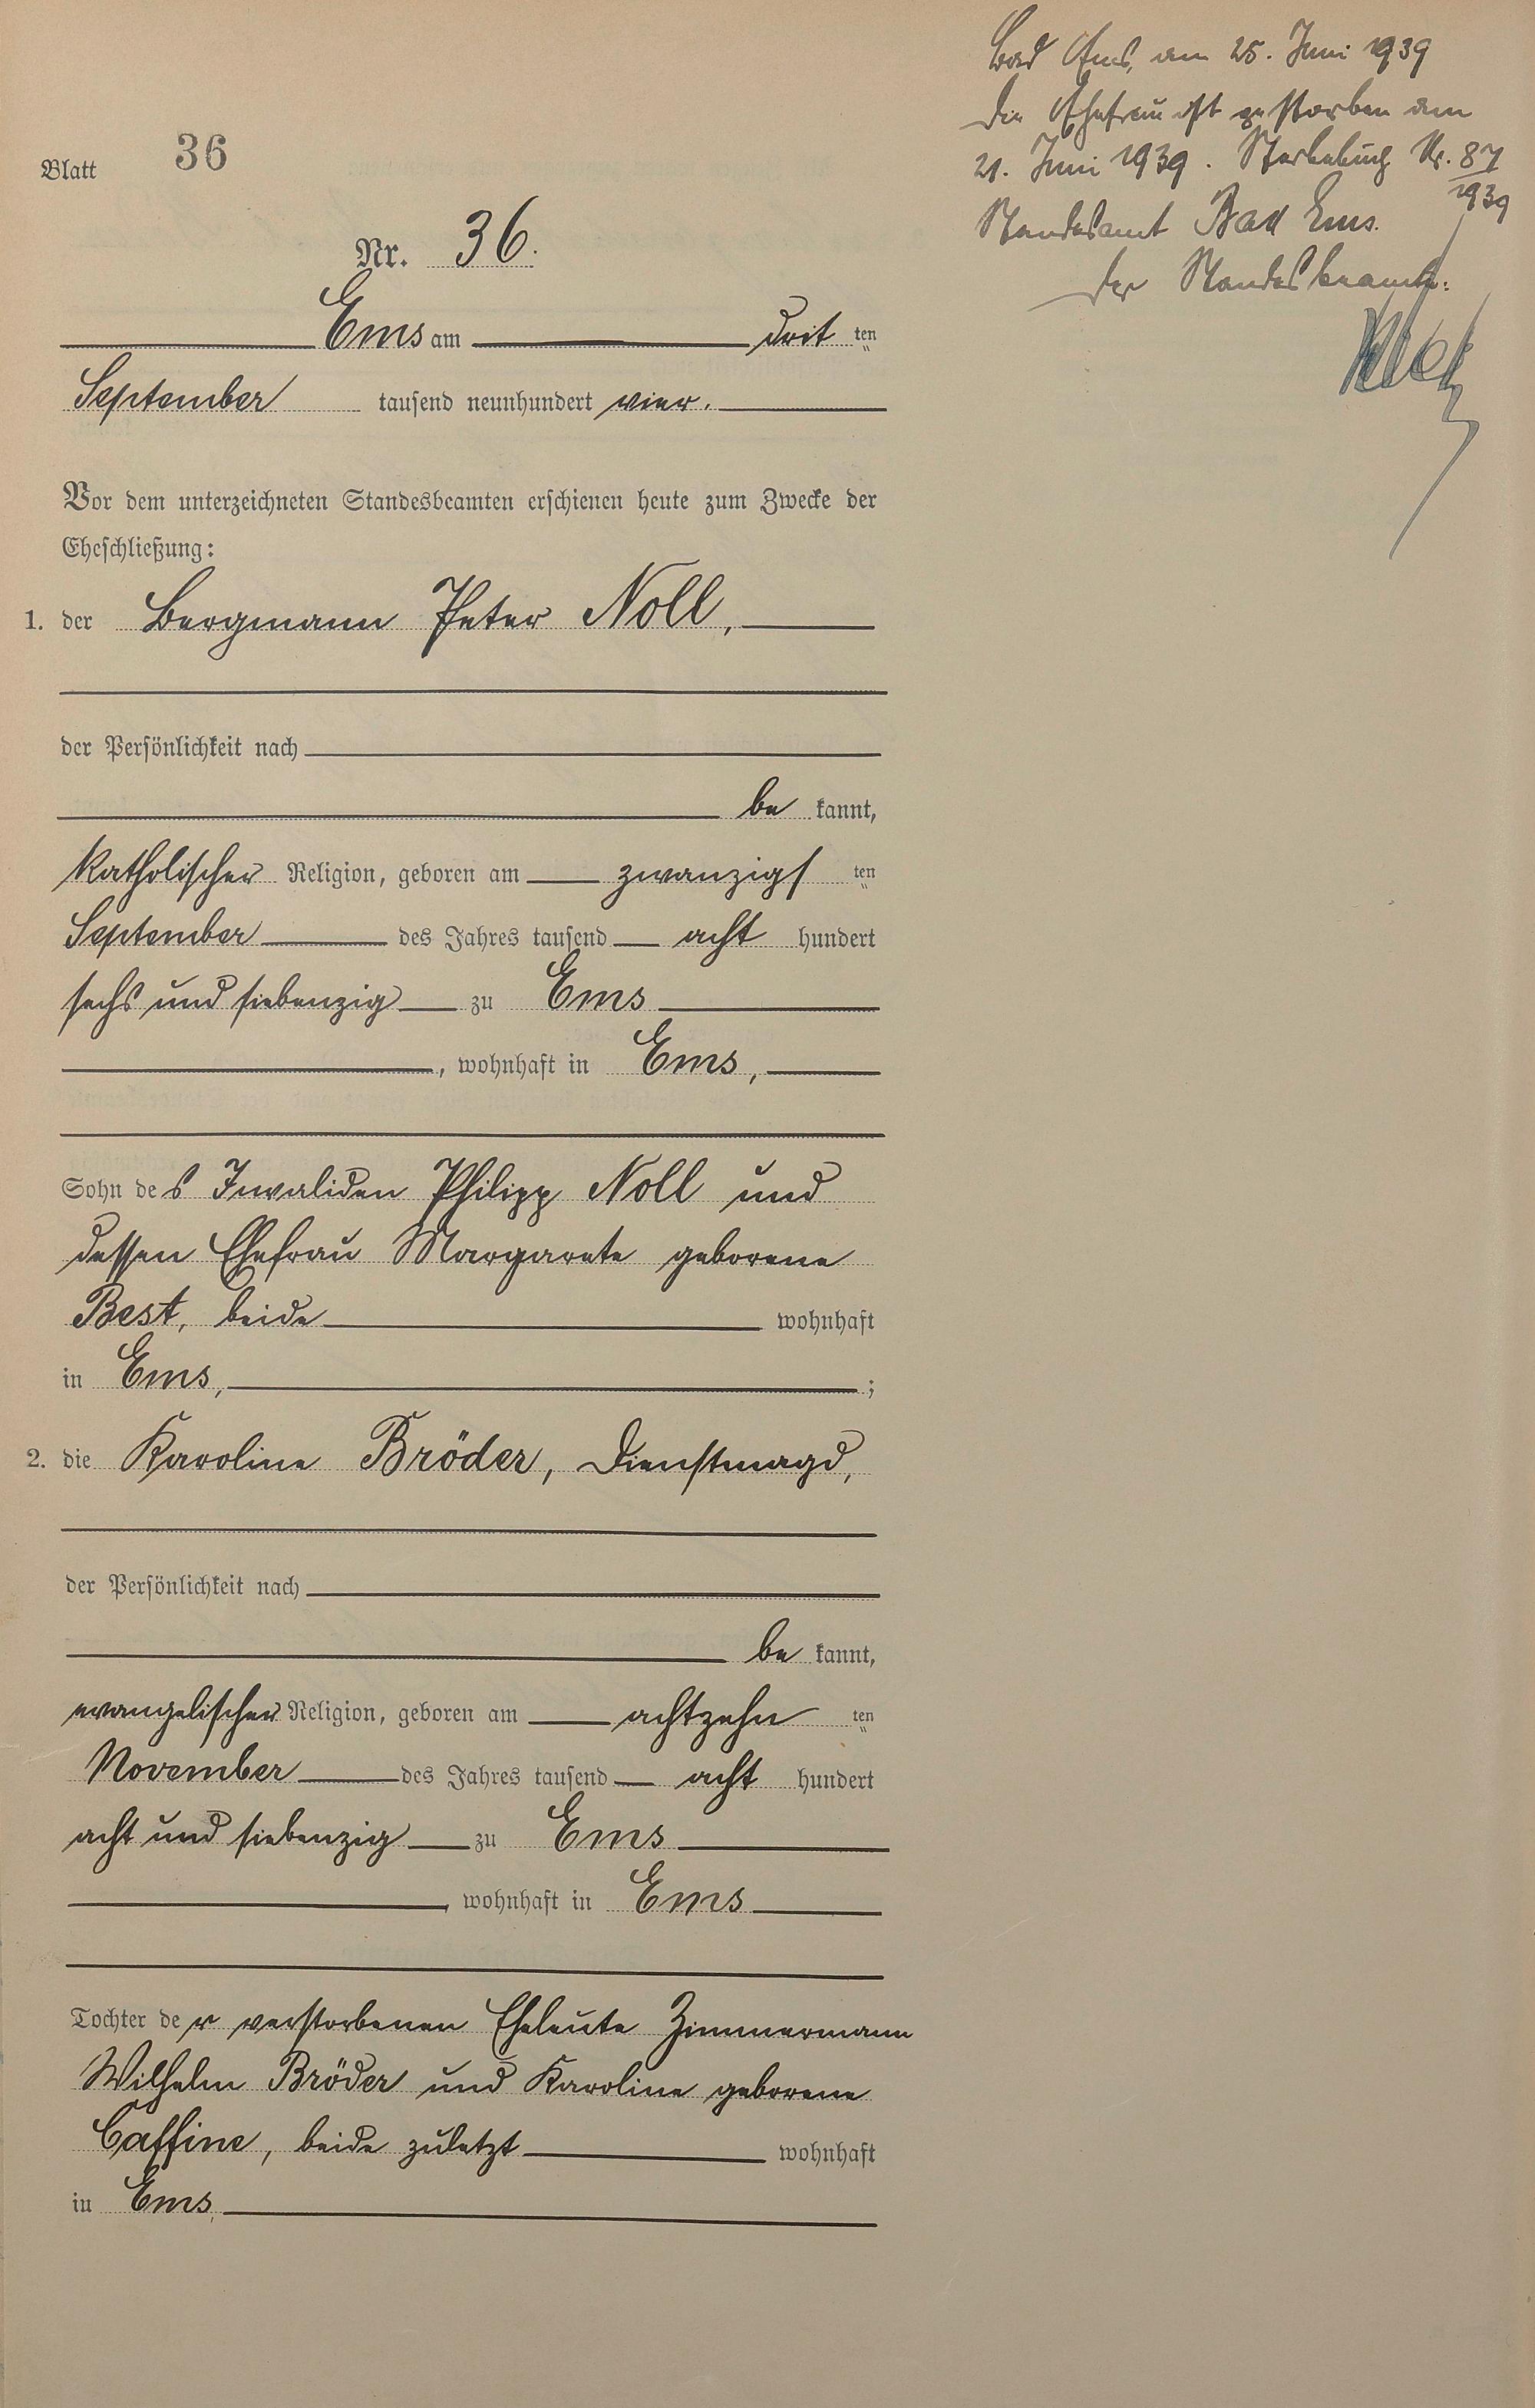 Blatt 36
Nr. 36.
Ems am dritten
September tausend neunhundert vier.
Vor dem unterzeichneten Standesbeamten erschienen heute zum Zwecke der
Eheschließung:
1. der Bergmann Peter Noll,
der Persönlichkeit nach
bekannt,
katholischer Religion, geboren am zwanzigsten
September des Jahres tausend acht hundert
sechs und siebenzig zu Ems
, wohnhaft in Ems,
Sohn des Invaliden Philipp Noll und
dessen Ehefrau Margarete geborene
Best, beide wohnhaft
in Ems, ;
2. die Karoline Bröder, Dienstmagd,
der Persönlichkeit nach
bekannt,
evangelischer Religion, geboren am achtzehnten
November des Jahres tausend acht hundert
acht und siebenzig zu Ems
, wohnhaft in Ems
Tochter der verstorbenen Eheleute Zimmermann
Wilhelm Bröder und Karoline geborene
Caffine, beide zuletzt wohnhaft
in Ems
Bad Ems, am 25. Juni 1939
Die Ehefrau ist gestorben am
21. Juni 1939. Sterbebuch Nr. 87/1939
Standesamt Bad Ems.
Der Standesbeamte: